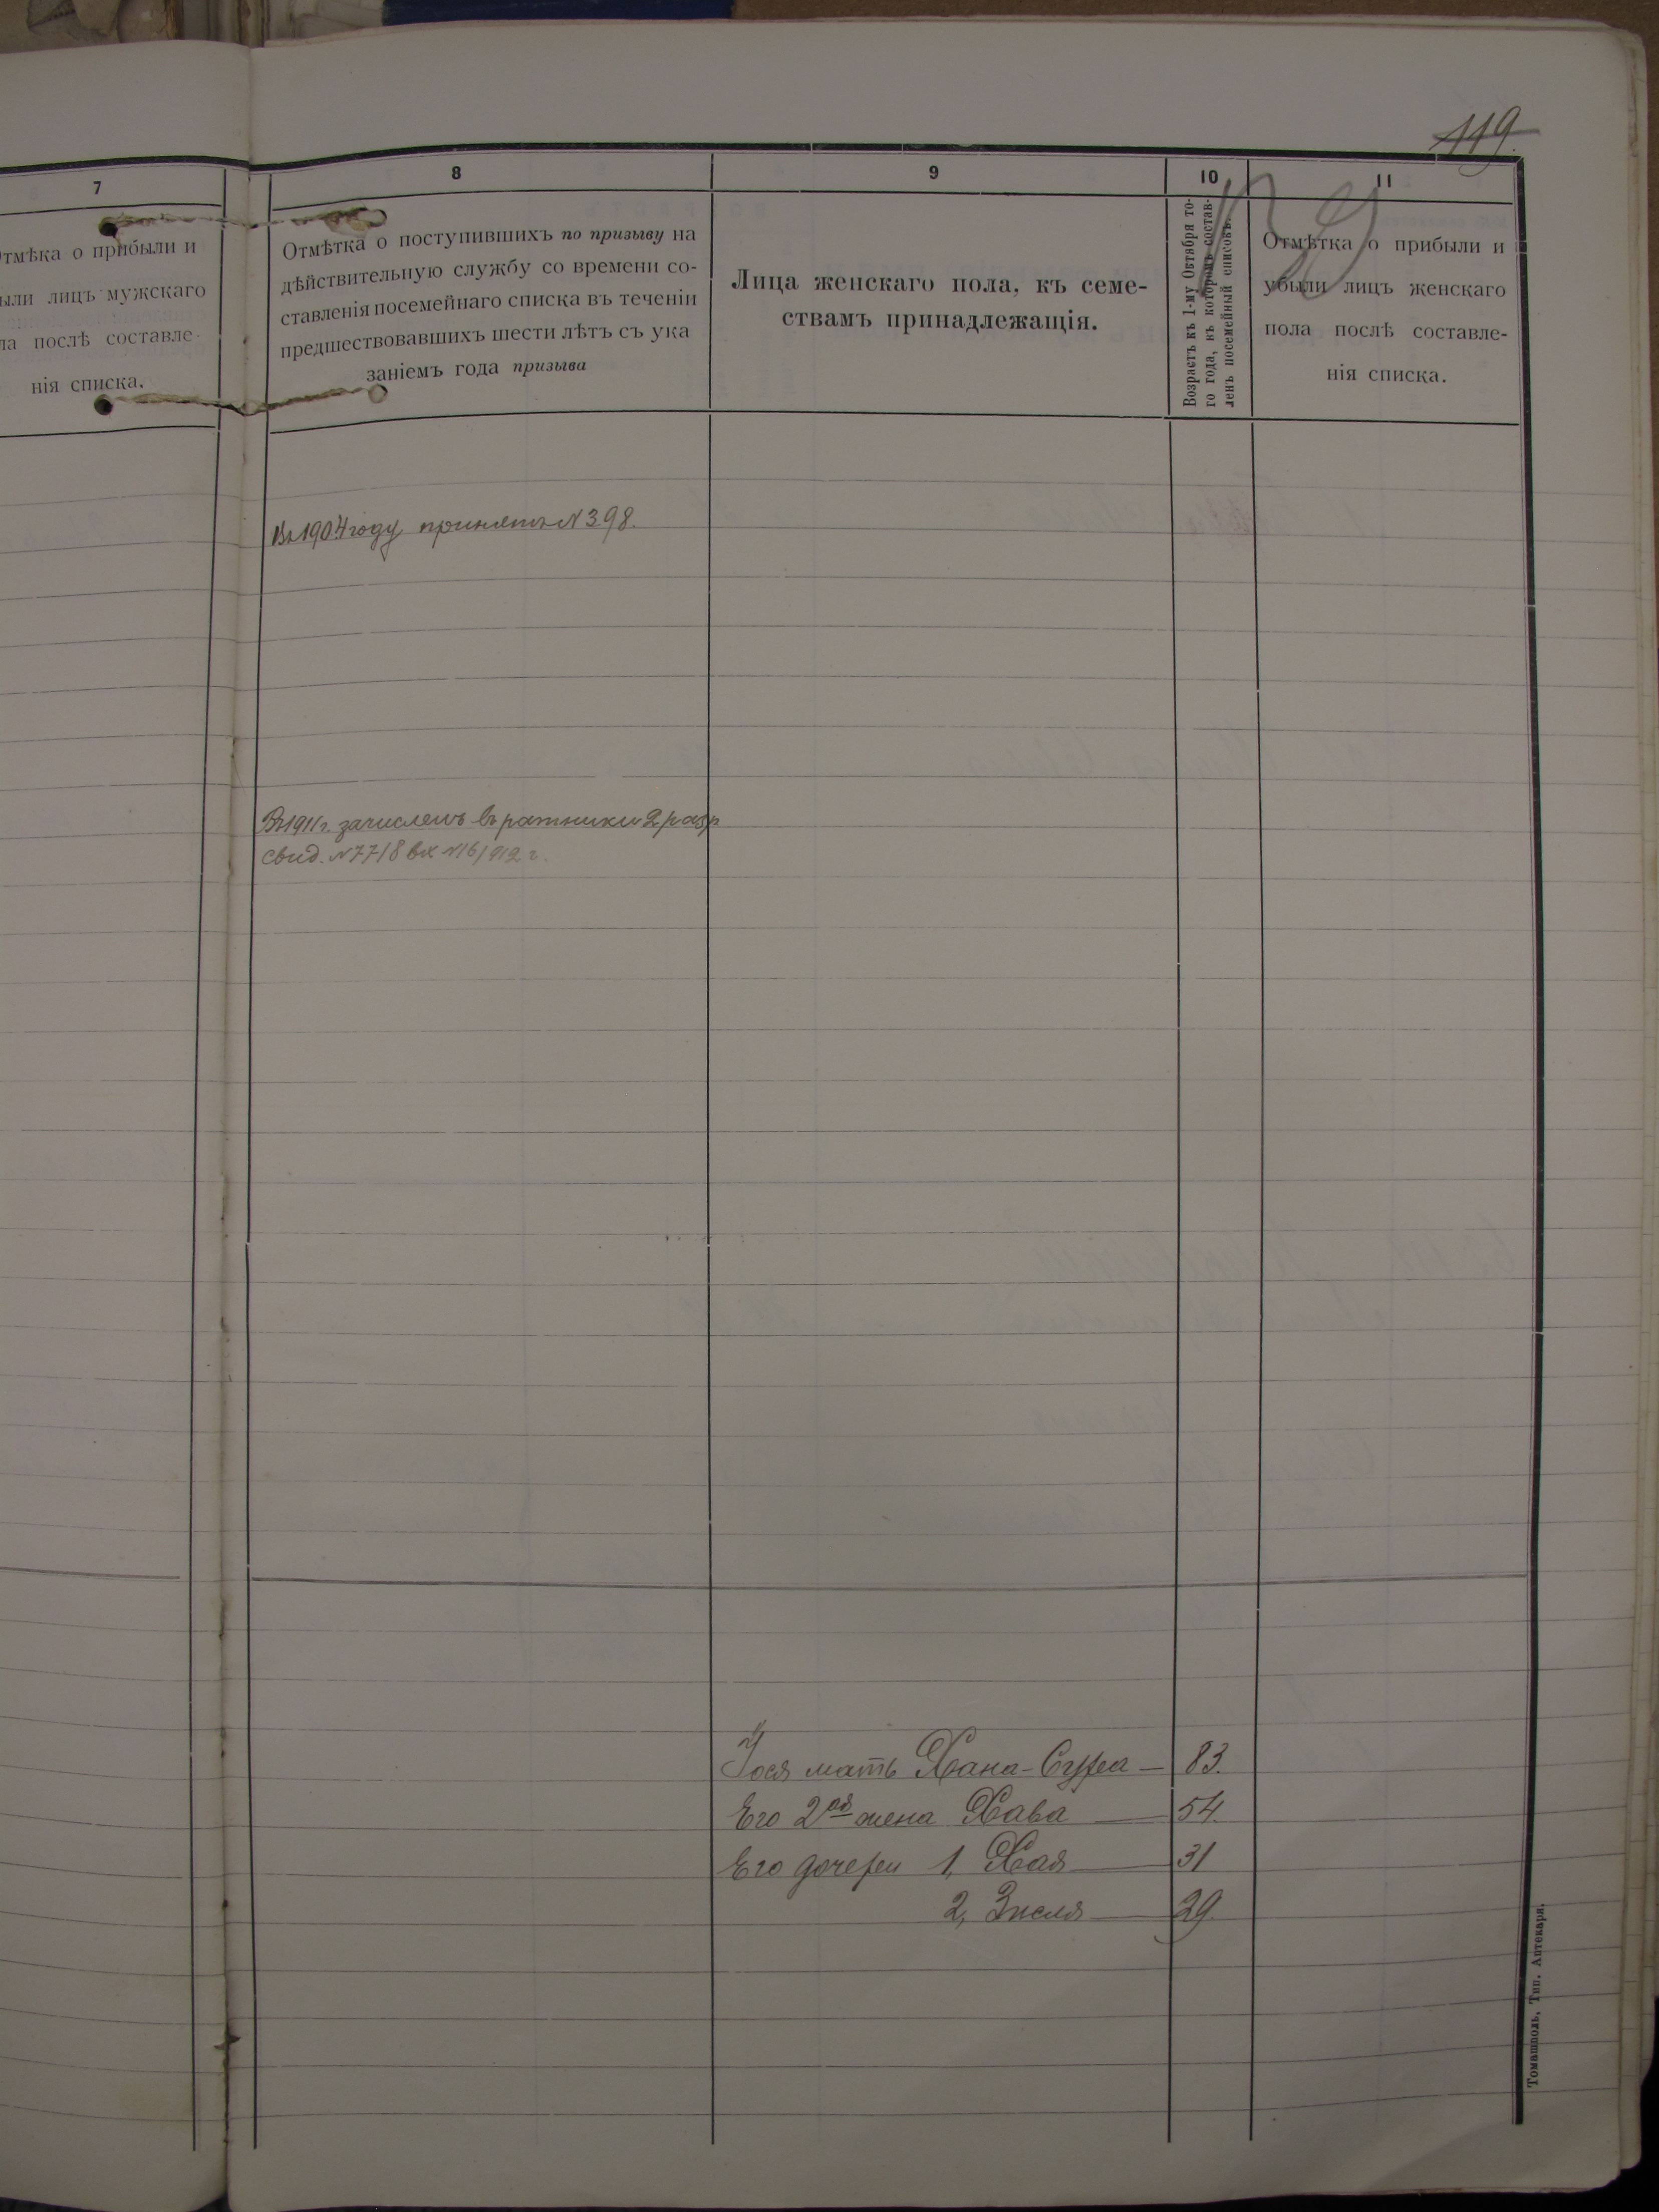 119.
7
8
9
10
11
Отмѣтка о прибыли и
ыли лицъ мужскаго
ла послѣ составле-
нія списка.
Отмѣтка о поступившихъ по призыву на
дѣйствительную службу со времени со-
ставленія посемейнаго списка въ теченіи
предшествовавшихъ шести лѣтъ съ ука
заніемъ года призыва
Лица женскаго пола, къ семе-
ствамъ принадлежащія.
Возрастъ къ 1-му Октября то-
го года, въ которомъ состав-
ленъ посемейный списокъ.
Отмѣтка о прибыли и
убыли лицъ женскаго
пола послѣ составле-
нія списка.
Въ 1904 году принятъ № 398.
Въ 1911 г. зачисленъ въ ратники 2 разр
свид. № 7718 вх № 16/912 г.
Іося мать Хана-Сура — 83.
Его 2ая жена Хава — 54.
Его дочери 1, Хая — 31
2, Энсля — 29.
Томашполь, Тип. Аптекаря.